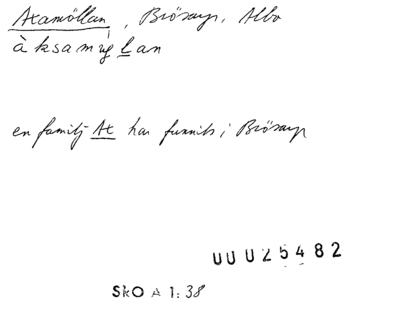 Axamöllan, Brösarp, Albo
àksamǿḷan
en familj Ax har funnits i Brösarp
00025482
SkO A 1:38